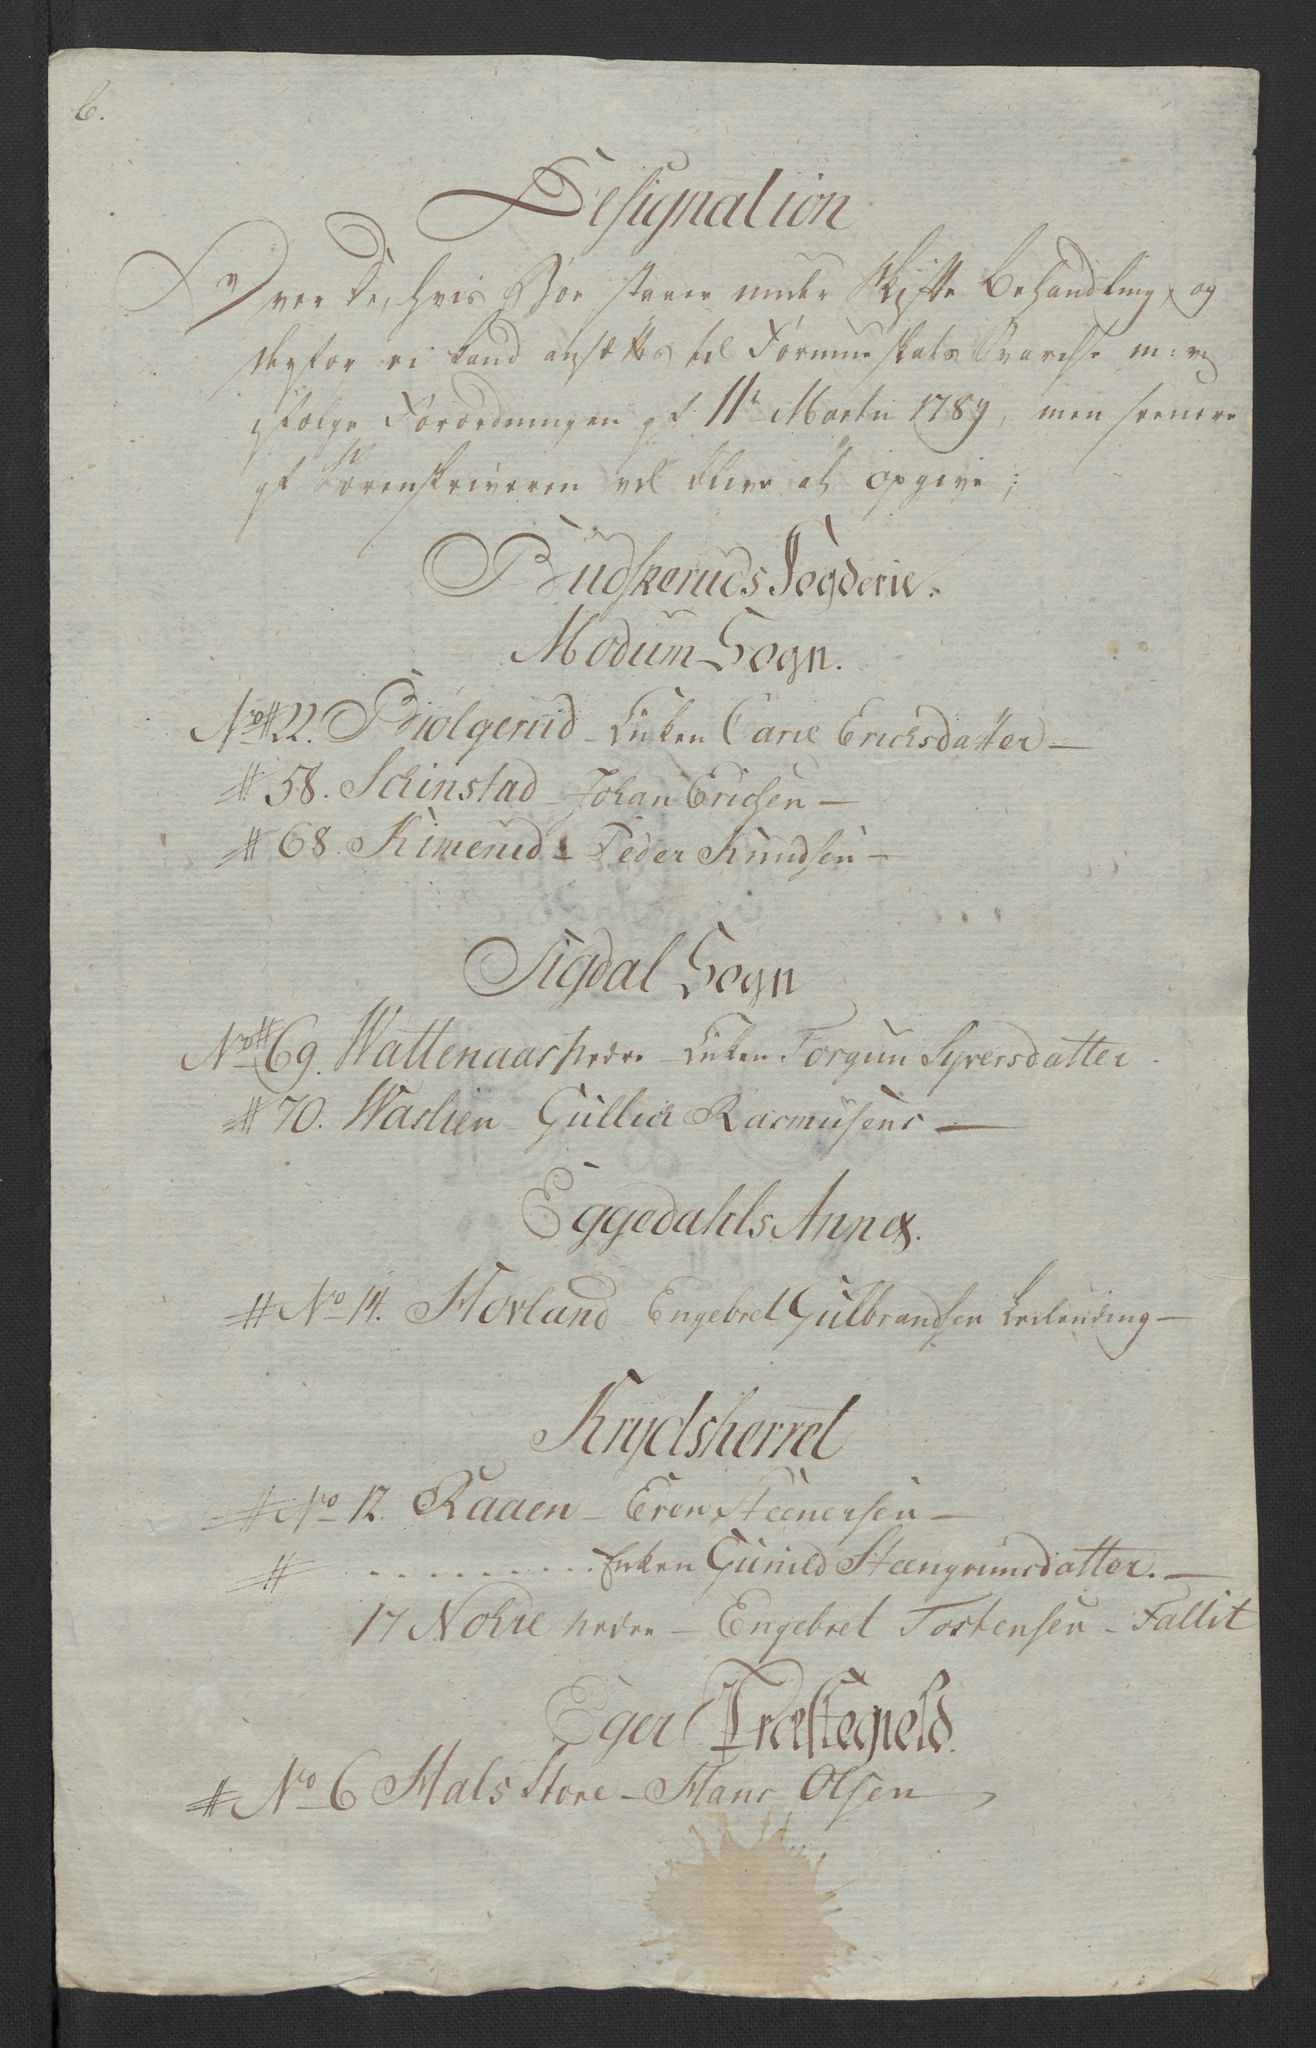 6.
Designation
Over de, hvis Boe staaer under Skifte Behandling, og
derfor ei kand ansættes til Formueskats Svarelse
ifølge Forordningen af 11te Martii 1789, men seenere
af Sorenskriveren vil blive at opgive;
Budskeruds Fogderie.
Modum Sogn.
No # 22. Biølgerud - Enken Carie Erichsdatter -
# 58. Schinstad - Johan Erichsen -
# 68. Kimerud - Peder Knudsen -
Sigdal Sogn
No # 69. Wattenaas nedre - Enken Torgun Syversdatter -
# 70. Waslien - Gullich Rasmusens -
Eggedahls Annex.
# No 14. Hovland - Engebret Gulbrandsen Leilending -
Krydsherret
# No 12. Raaen - Even Steenersen -
# . . . . . . . . . . Enken Gunild Steengrimsdatter. -
17 Nohre nedre - Engebret Tostensen - Fallit
Eger Præstegield.
# No 6 Hals Store - Hans Olsen